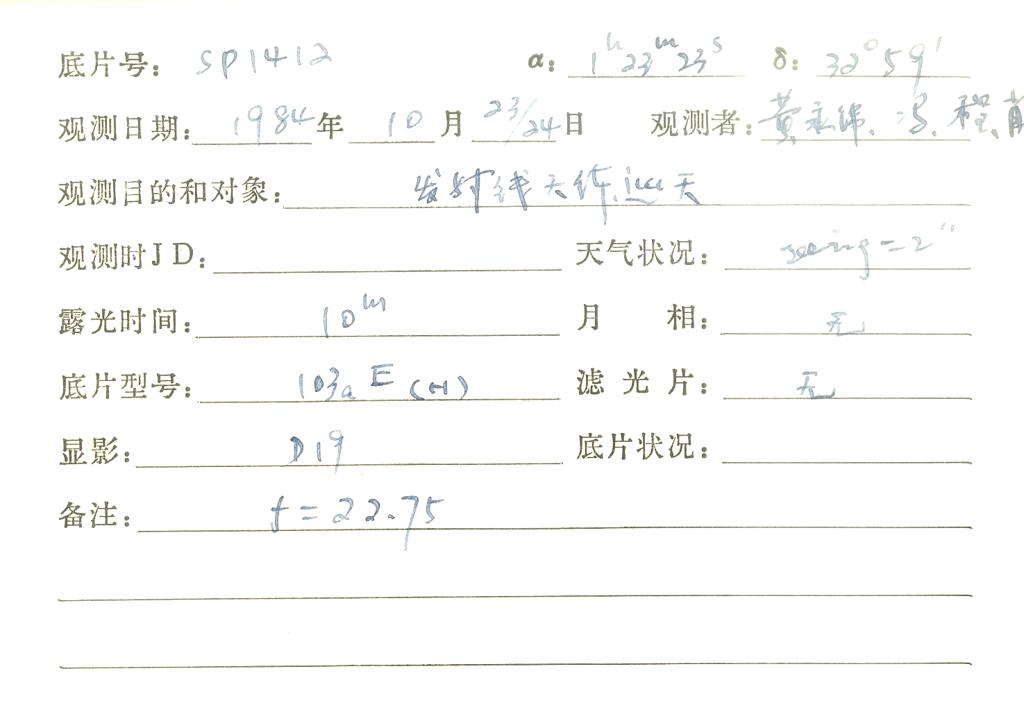 底片号: SP1412 α: 1h23m23s δ: 32°59′
观测日期: 1984年 10月 23/24日 观测者: 黄永纬、冯、程、肖
观测目的和对象: 发射线天体巡天
观测时JD: 天气状况: seeing=2″
露光时间: 10m 月 相: 无
底片型号: 103aE(H) 滤光片: 无
显影: D19 底片状况:
备注: f=22.75